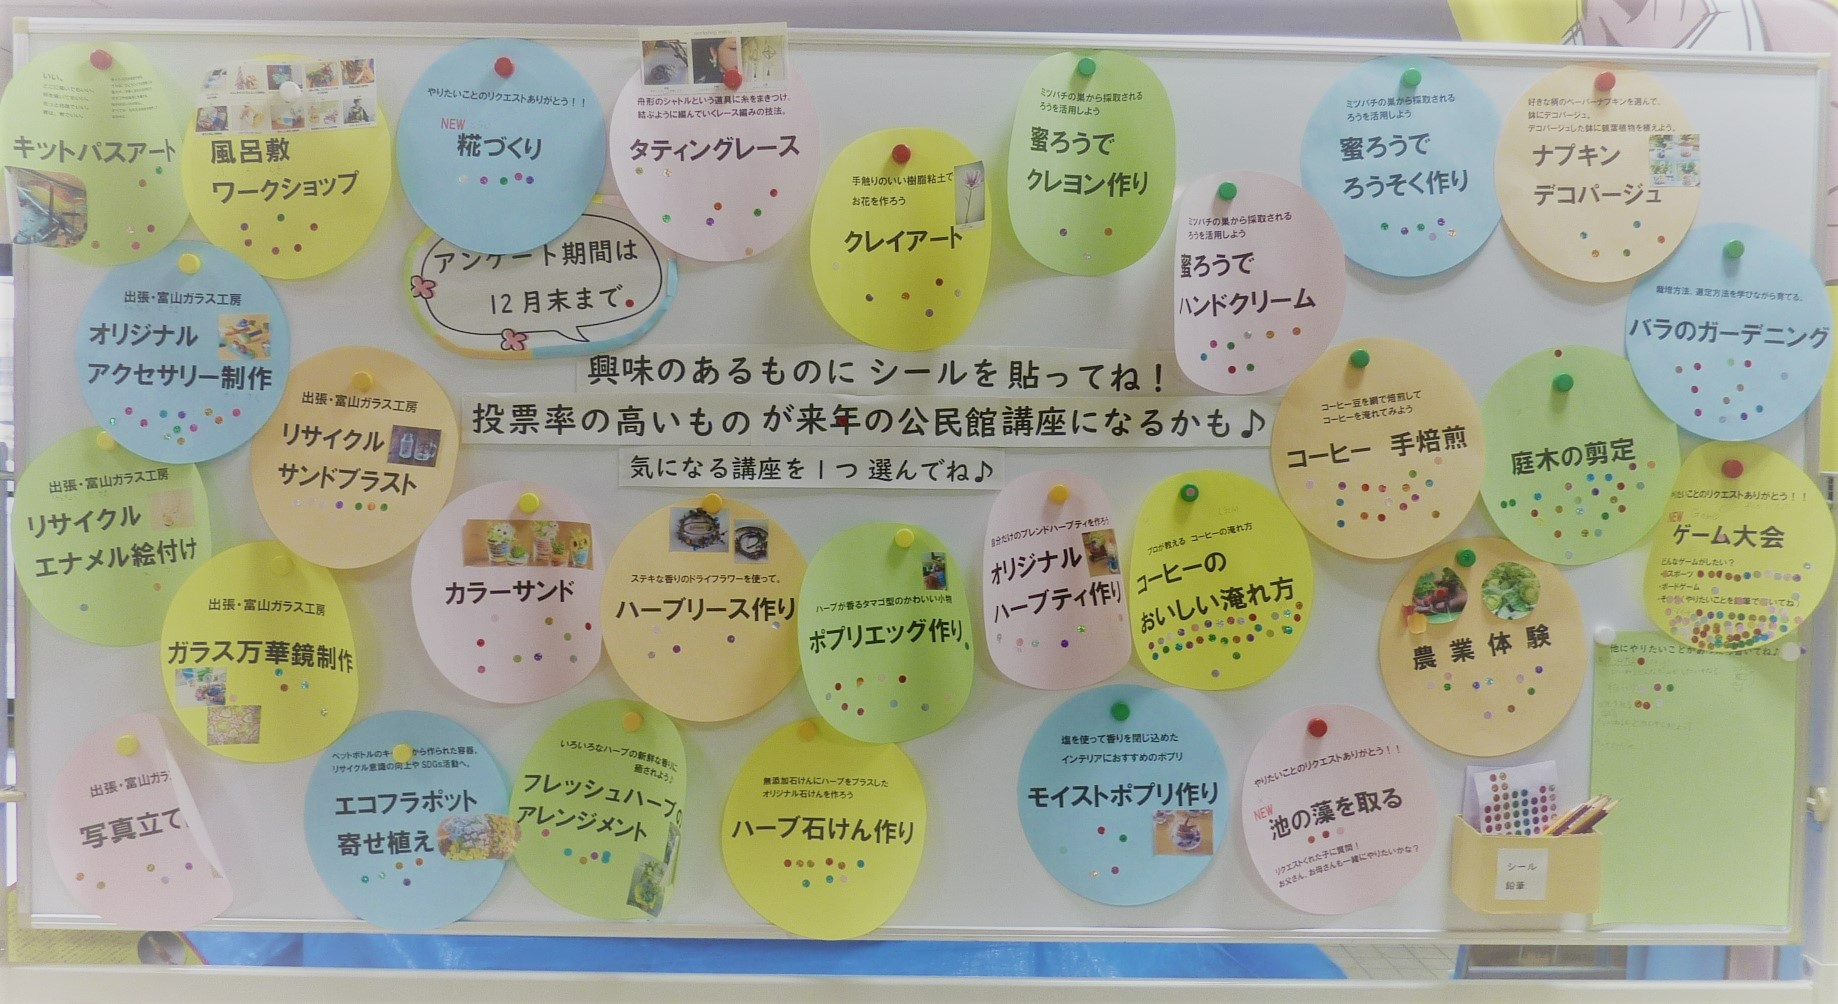 キットパスアート
風呂敷
ワークショップ
やりたいことのリクエストありがとう！！
NEW
糀づくり
舟形のシャトルという道具に糸をまきつけ、
結ぶように編んでいくレース編みの技法。
タティングレース
手触りのいい樹脂粘土で
お花を作ろう
クレイアート
ミツバチの巣から採取される
ろうを活用しよう
蜜ろうで
クレヨン作り
ミツバチの巣から採取される
ろうを活用しよう
蜜ろうで
ハンドクリーム
ミツバチの巣から採取される
ろうを活用しよう
蜜ろうで
ろうそく作り
好きな柄のペーパーナプキンを選んで、
鉢にデコパージュ。
デコパージュした鉢に観葉植物を植えよう。
ナプキン
デコパージュ
栽培方法、選定方法を学びながら育てる。
バラのガーデニング
アンケート期間は
12月末まで。
興味のあるものに シールを 貼ってね！
投票率の高いもの が来年の公民館講座になるかも♪
気になる講座を 1つ 選んでね♪
出張・富山ガラス工房
オリジナル
アクセサリー制作
出張・富山ガラス工房
リサイクル
サンドブラスト
出張・富山ガラス工房
リサイクル
エナメル絵付け
出張・富山ガラス工房
ガラス万華鏡制作
出張・富山ガラ
写真立て
カラーサンド
ステキな香りのドライフラワーを使って。
ハーブリース作り
ハーブが香るタマゴ型のかわいい小物
ポプリエッグ作り
自分だけのブレンドハーブティを作ろう
オリジナル
ハーブティ作り
プロが教える コーヒーの淹れ方
コーヒーの
おいしい淹れ方
コーヒー豆を網で焙煎して
コーヒーを淹れてみよう
コーヒー 手焙煎
庭木の剪定
リクエストありがとう！！
NEW
ゲーム大会
どんなゲームがしたい？
ボードゲーム
農業体験
ペットボトルのキ から作られた容器。
リサイクル意識の向上や SDGs活動へ。
エコフラポット
寄せ植え
いろいろなハーブの新鮮な香りに
癒されよう♪
フレッシュハーブの
アレンジメント
無添加石けんにハーブをプラスした
オリジナル石けんを作ろう
ハーブ石けん作り
塩を使って香りを閉じ込めた
インテリアにおすすめのポプリ
モイストポプリ作り
やりたいことのリクエストありがとう！！
NEW
池の藻を取る
リクエストくれた子に質問！
お父さん、お母さんも一緒にやりたいかな？
シール
鉛筆